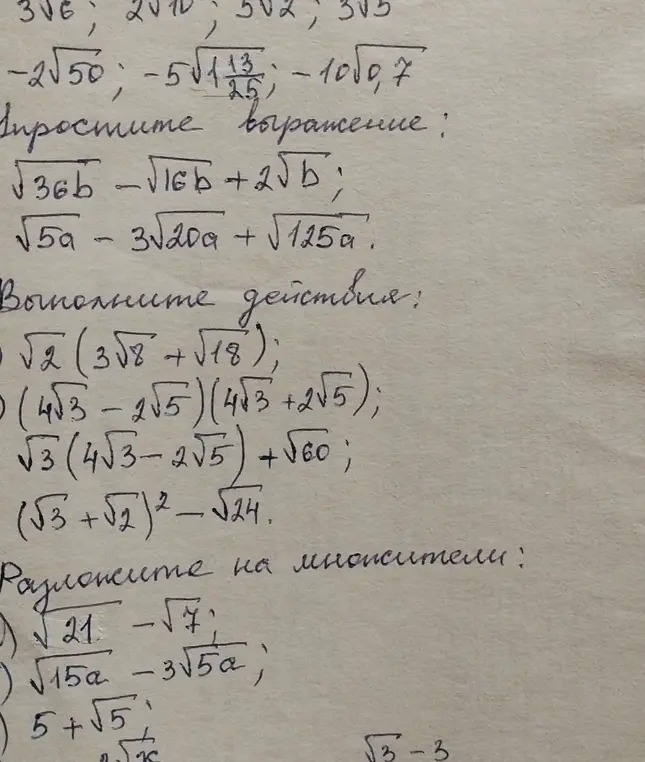 3√6; 2√10; 5√2; 3√5
-2√50; -5√(1 13/25); -10√0,7
Упростите выражение:
√36b - √16b + 2√b;
√5a - 3√20a + √125a.
Выполните действия:
) √2 (3√8 + √18);
) (4√3 - 2√5)(4√3 + 2√5);
√3 (4√3 - 2√5) + √60;
(√3 + √2)² - √24.
Разложите на множители:
) √21 - √7;
) √15a - 3√5a;
) 5 + √5;
√3 - 3